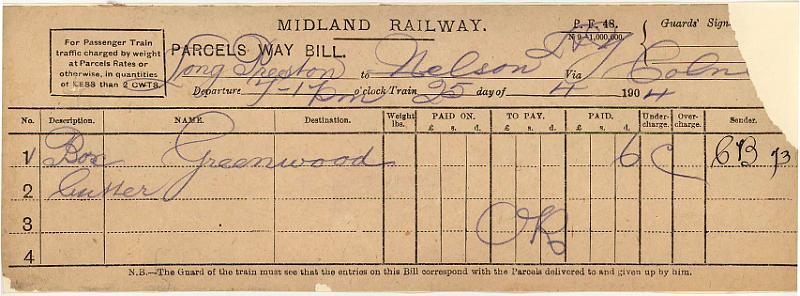 MIDLAND RAILWAY.
P. F. 48.
N 9—1,000,000.
Guards' Sign
For Passenger Train
traffic charged by weight
at Parcels Rates or
otherwise, in quantities
of LESS than 2 CWTS.
PARCELS WAY BILL.
Long Preston to Nelson Via Coln
Departure 7-17 pm o'clock Train 25 day of 4 1904
No. Description. NAME. Destination. Weight lbs. PAID ON. TO PAY. PAID. Under-charge. Over-charge. Sender.
£ s. d. £ s. d. £ s. d.
1 Box Greenwood 6
2 Butter
3
4
N.B.—The Guard of the train must see that the entries on this Bill correspond with the Parcels delivered to and given up by him.